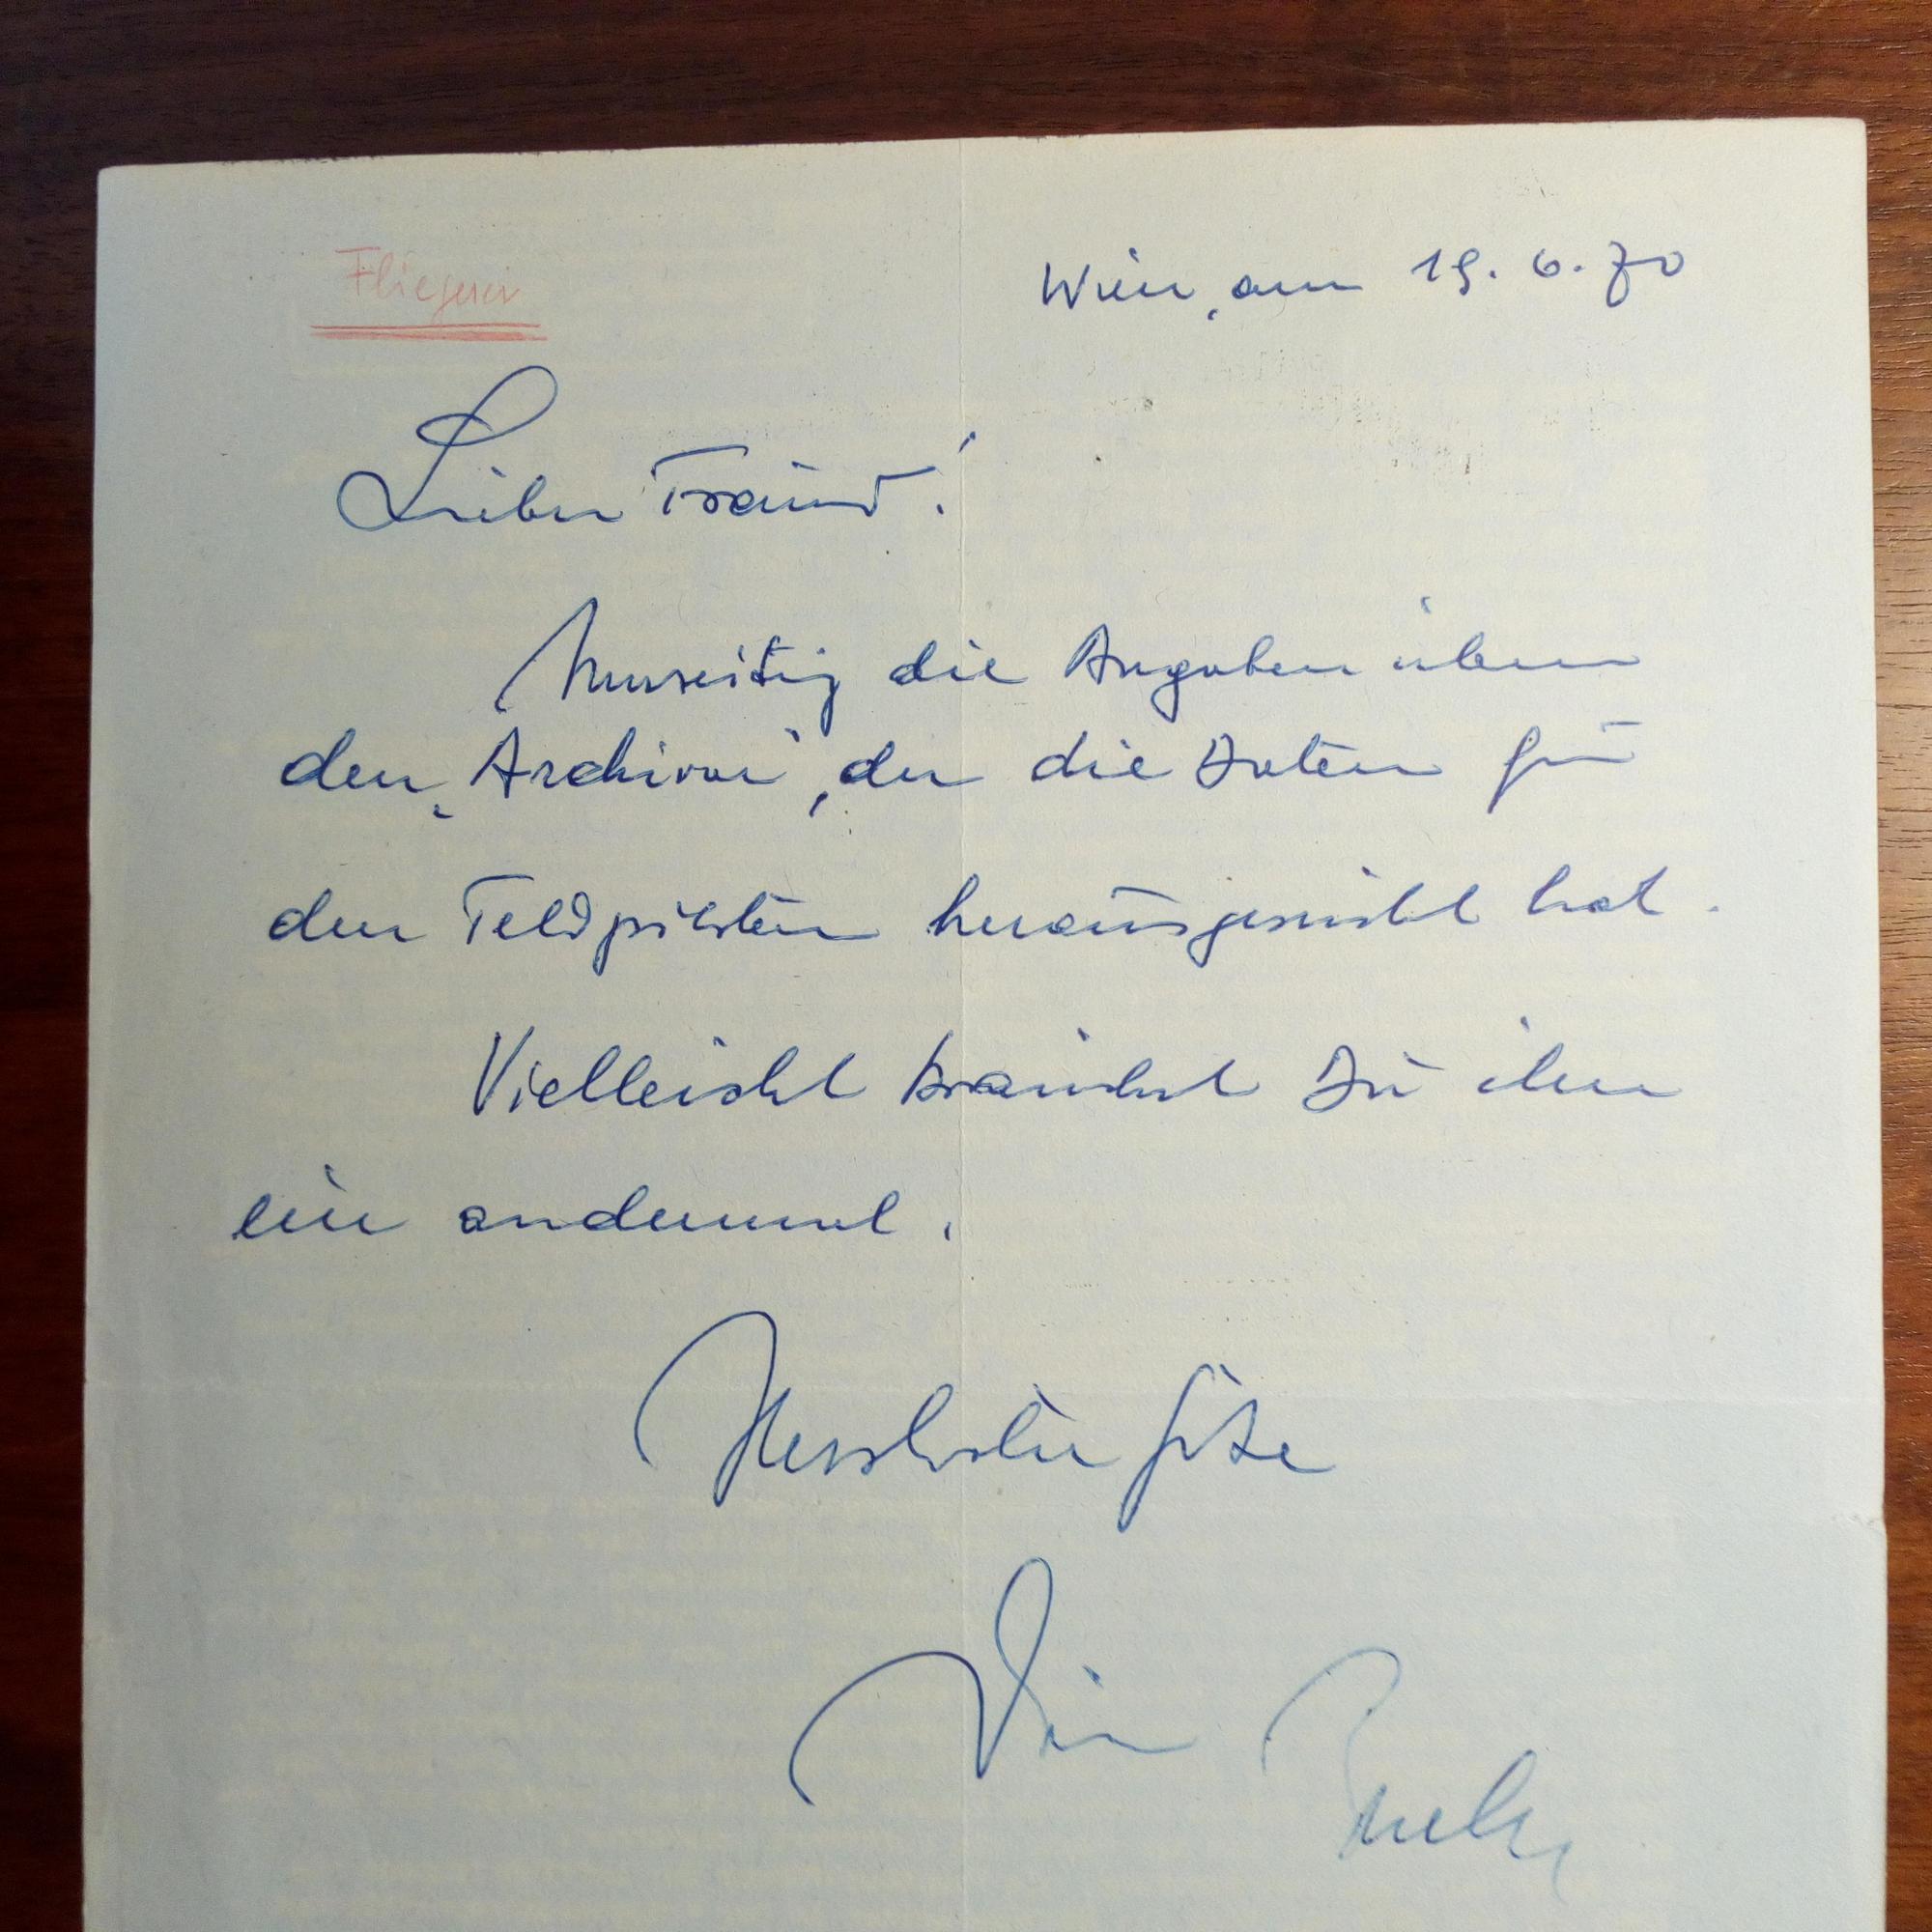 Wien, am 19. 6. 70
Lieber Freund!
Umseitig die Angaben über
den „Archivar“, der die Daten für
den Feldpiloten herausgesucht hat.
Vielleicht brauchst Du ihn
ein andermal.
Herzlichste Grüße
Dein